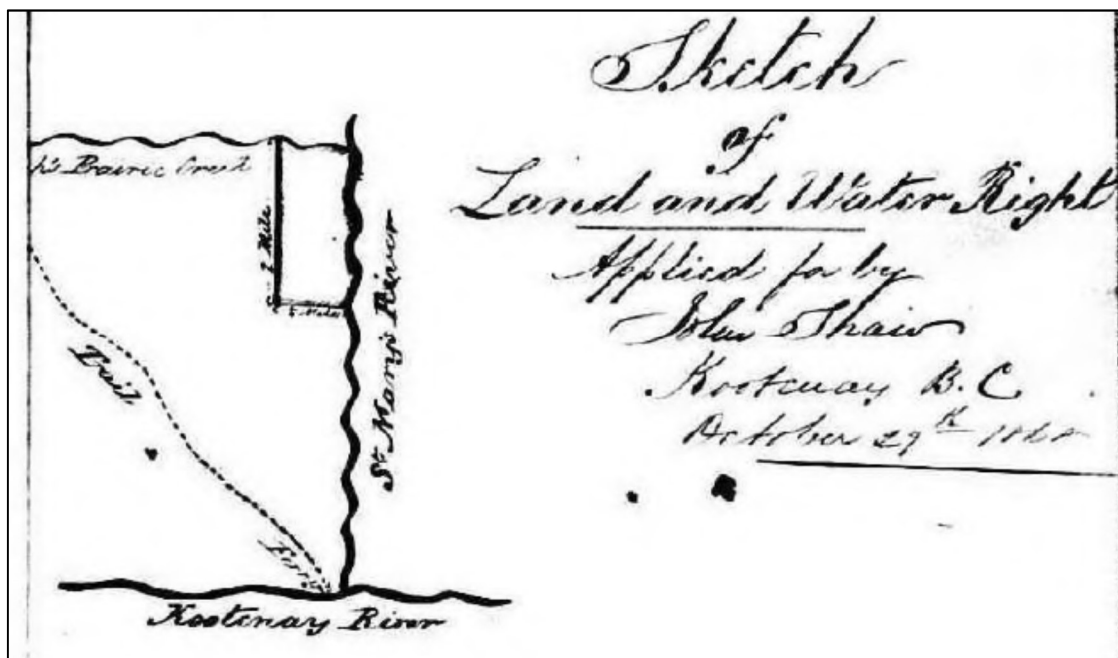 Sketch
of
Land and Water Right
Applied for by
John Shaw
Kootenay B.C
October 29th
h's Prairie Creek
Mile
St. Mary's River
Trail
Ferry
Kootenay River